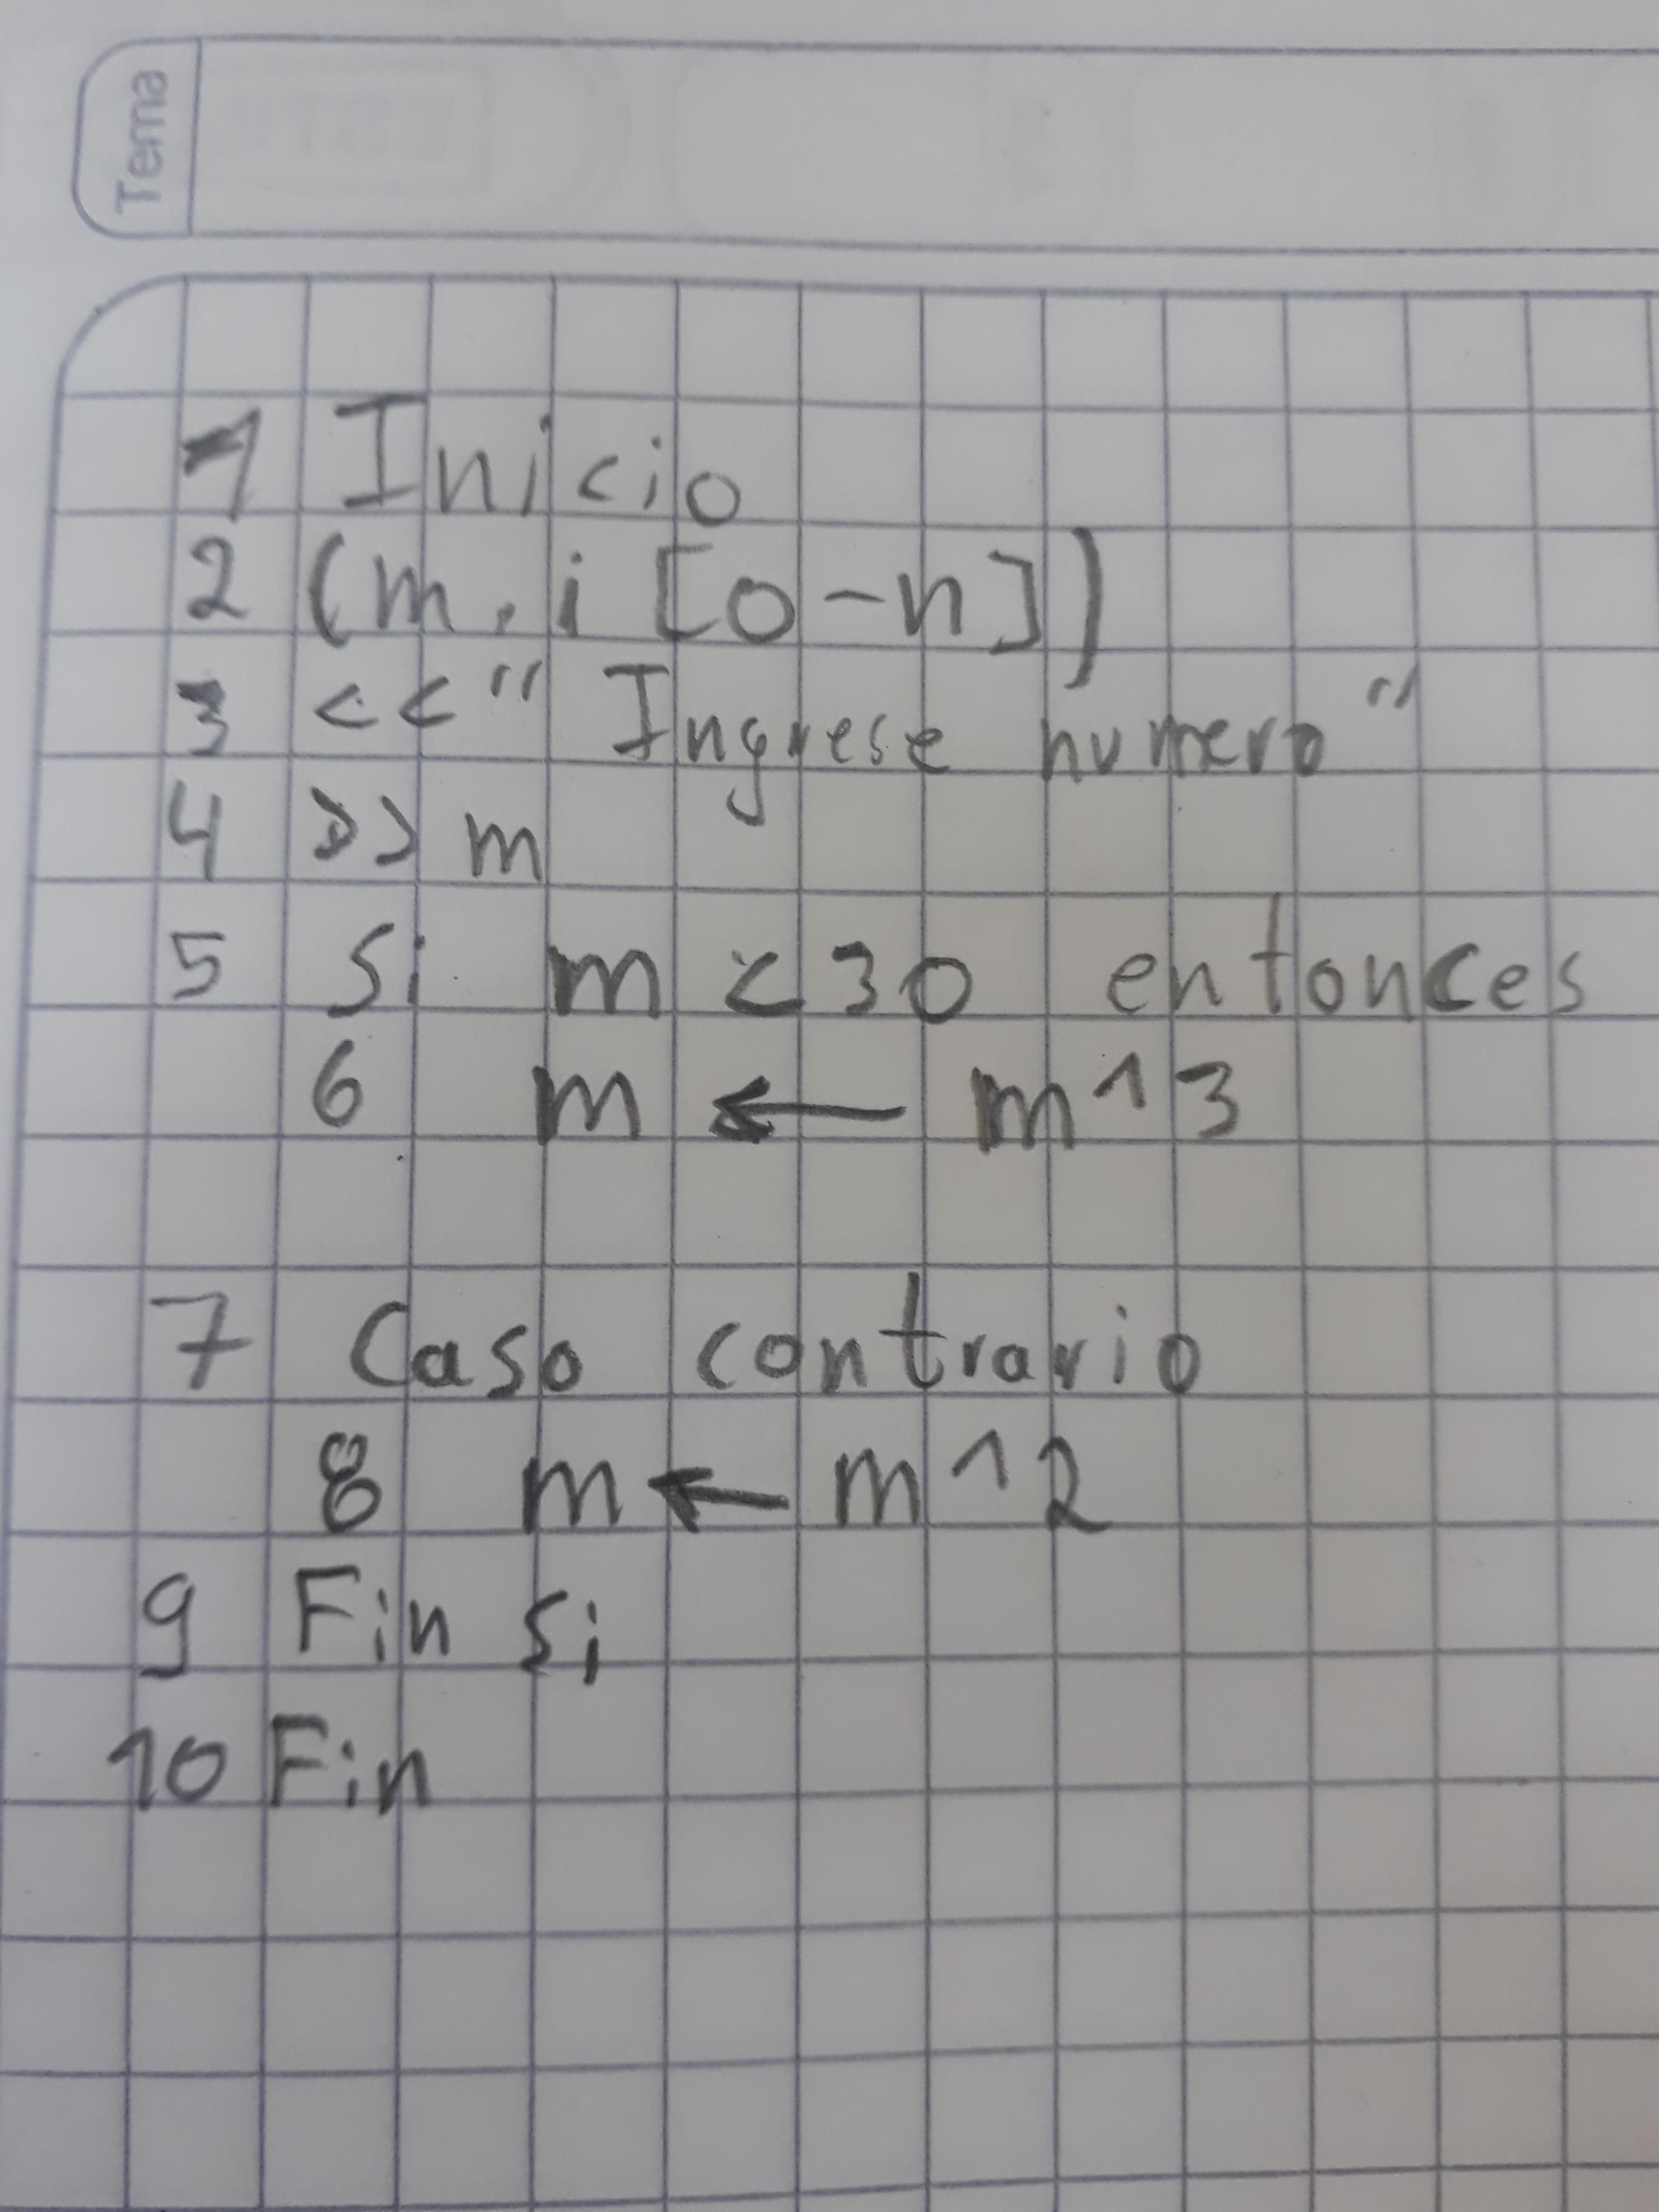 Tema
1 Inicio
2 (m, i [0-n])
3 << " Ingrese numero "
4 >> m
5 Si m < 30 entonces
6 m ← m^3
7 Caso contrario
8 m ← m^2
9 Fin si
10 Fin